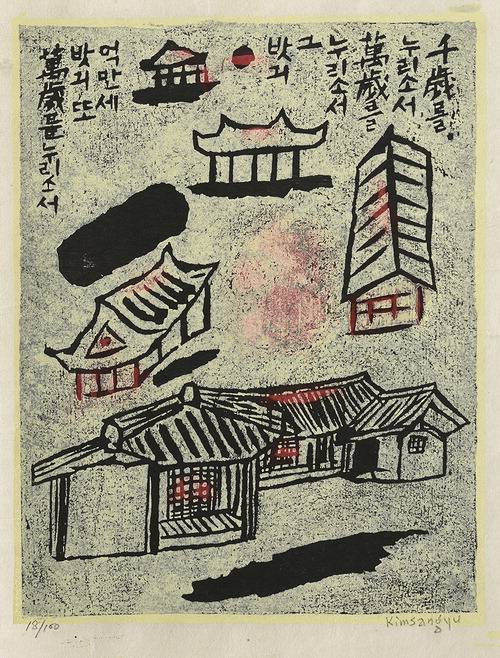 千歲를.
누리소서
萬歲를
누리소서
그
밧긔
억만세
밧긔 또
萬歲를누리소서
18/100
Kimsangyu